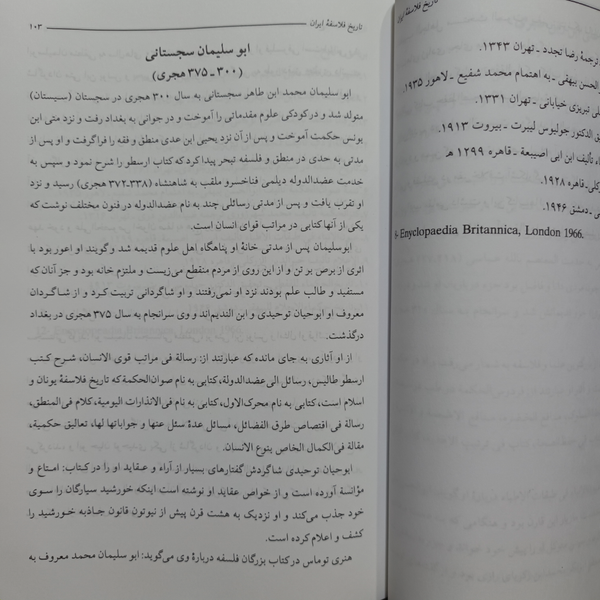 تاریخ فلاسفهٔ ایران
۱۰۳
ابو سلیمان سجستانی
(۳۰۰ ـ ۳۷۵ هجری)
ابو سلیمان محمد ابن طاهر سجستانی به سال ۳۰۰ هجری در سجستان (سیستان)
متولد شد و در کودکی علوم مقدماتی را آموخت و در جوانی به بغداد رفت و نزد متی ابن
یونس حکمت آموخت و پس از آن نزد یحیی ابن عدی منطق و فقه را فراگرفت و او پس از
مدتی به حدی در منطق و فلسفه تبحر پیدا کرد که کتاب ارسطو را شرح نمود و سپس به
خدمت عضدالدوله دیلمی فناخسرو ملقب به شاهنشاه (۳۳۸-۳۷۲ هجری) رسید و نزد
او تقرب یافت و پس از مدتی رسائلی چند به نام عضدالدوله در فنون مختلف نوشت که
یکی از آنها کتابی در مراتب قوای انسان است.
ابوسلیمان پس از مدتی خانهٔ او پناهگاه اهل علوم قدیمه شد و گویند او اعور بود با
اثری از برص بر تن و از این روی از مردم منقطع می‌زیست و ملتزم خانه بود و جز آنان که
مستفید و طالب علم بودند نزد او نمی‌رفتند و او شاگردانی تربیت کرد و از شاگردان
معروف او ابوحیان توحیدی و ابن الندیم‌اند و وی سرانجام به سال ۳۷۵ هجری در بغداد
درگذشت.
از او آثاری به جای مانده که عبارتند از: رسالة فی مراتب قوی الانسان، شرح کتب
ارسطو طالیس، رسائل الی عضدالدولة، کتابی به نام صوان‌الحکمة که تاریخ فلاسفهٔ یونان و
اسلام است، کتابی به نام محرک‌الاول، کتابی به نام فی‌الانذارات الیومیة، کلام فی‌المنطق،
رسالة فی اقتصاص طرق الفضائل، مسائل عدة سئل عنها و جواباتها لها، تعالیق حکمیة،
مقالة فی‌الکمال الخاص بنوع الانسان.
ابوحیان توحیدی شاگردش گفتارهای بسیار از آراء و عقاید او را در کتاب: امتاع و
مؤانسة آورده است و از خواص عقاید او نوشته است اینکه خورشید سیارگان را سوی
خود جذب می‌کند و او نزدیک به هشت قرن پیش از نیوتون قانون جاذبه خورشید را
کشف و اعلام کرده است.
هنری توماس در کتاب بزرگان فلسفه دربارهٔ وی می‌گوید: ابو سلیمان محمد معروف به
تاریخ فلاسفهٔ ایران
ترجمهٔ رضا تجدد ـ تهران ۱۳۴۳.
الحسن بیهقی ـ به اهتمام محمد شفیع ـ لاهور ۱۹۳۵.
تبریزی خیابانی ـ تهران ۱۳۳۱.
الدکتور جولیوس لیبرت ـ بیروت ۱۹۱۳.
تألیف ابن ابی اصیبعة ـ قاهره ۱۲۹۹ هـ
قاهره ۱۹۲۸.
دمشق ۱۹۴۶.
Enyclopaedia Britannica, London 1966.